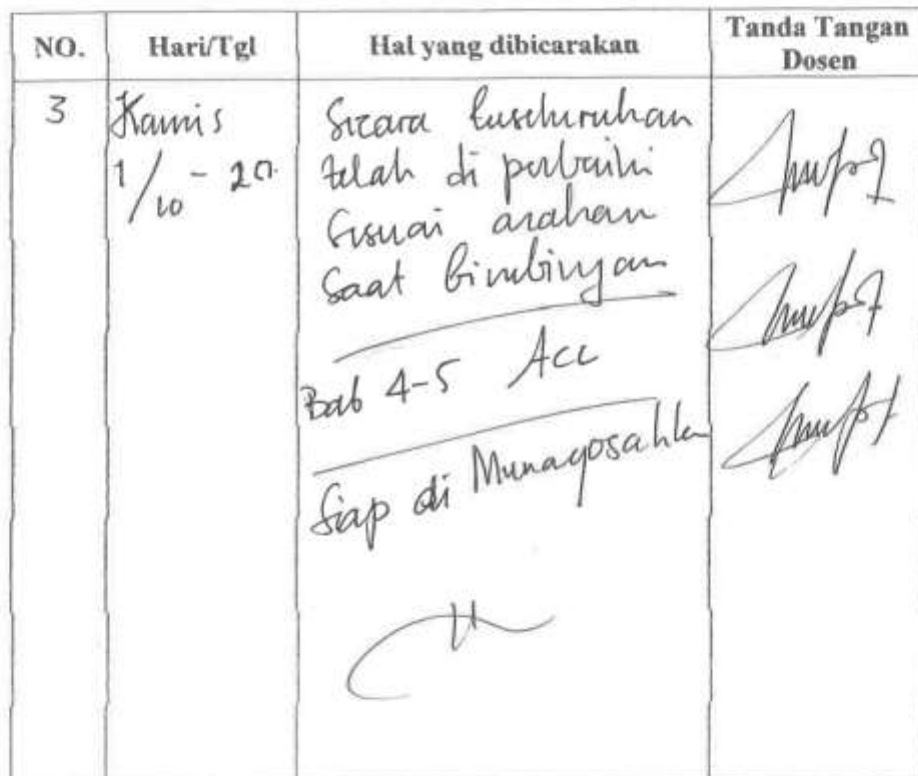 NO. Hari/Tgl Hal yang dibicarakan Tanda Tangan Dosen
3 Kamis Secara keseluruhan
1/10 - 20 telah di perbaiki
sesuai arahan
saat bimbingan
Bab 4-5 Acc
Siap di Munaqosahkn